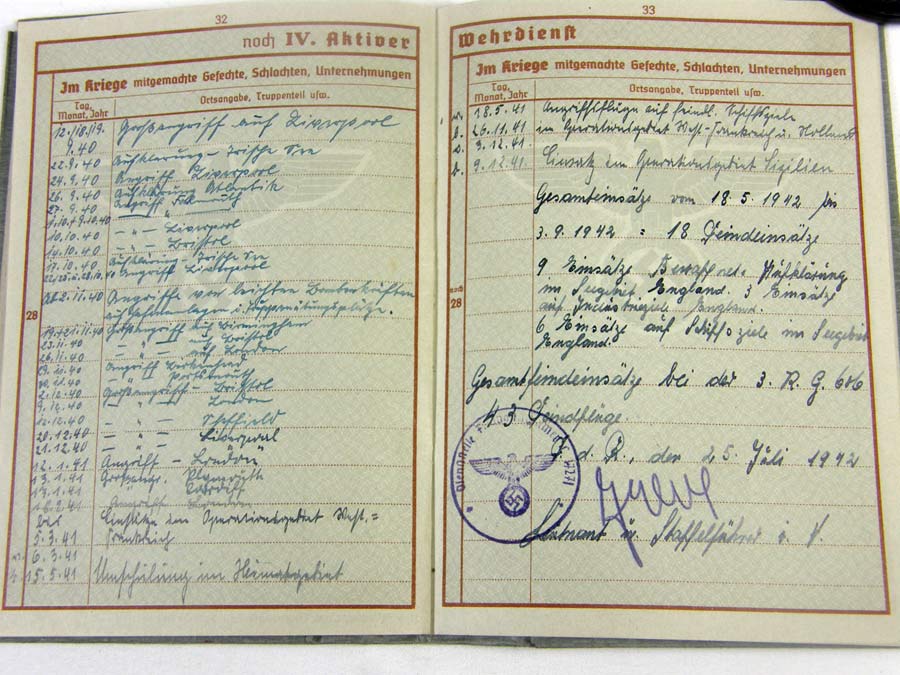 32
noch IV. Aktiver
Im Kriege mitgemachte Gefechte, Schlachten, Unternehmungen
Tag, Monat, Jahr
Ortsangabe, Truppenteil usw.
12./18./19. 9.40 Großangriff auf Liverpool
22.9.40 Aufklärung - Irische See
24.9.40 Angriff Liverpool
26.9.40 Aufklärung Atlantik
27.9.40 Angriff Falmouth
7.10.+9.10.40 — " —
10.10.40 — " — Liverpool
14.10.40 — " — Bristol
17.10.40 Aufklärung - Irische See
Angriff Liverpool
Ab 2.11.40 Angriffe von leichten
28
19.+21.11.40 Großangriff auf Birmingham
23.11.40 — " — auf Bristol
26.11.40 — " — auf London
Angriff Birkenhead
— " — Portsmouth
2.12.40 Großangriff - Bristol
9.12.40 — " — London
12.12.40 — " — Sheffield
20.12.40 — " — Liverpool
21.12.40
12.1.41 Angriff - London
13.1.41 Großangr. Plymouth
13.1.41 Cardiff
16.2.41 Angriff London
bis Einsätze im Operationsgebiet West-
5.3.41 Frankreich
v. 6.3.41
b. 15.5.41 Umschulung im Heimatgebiet
33
Wehrdienst
Im Kriege mitgemachte Gefechte, Schlachten, Unternehmungen
Tag, Monat, Jahr
Ortsangabe, Truppenteil usw.
v. 18.5.41 Angriffsflüge auf feindl. Schiffsziele
b. 26.11.41 im Operationsgebiet West-Frankreich u. Holland
v. 3.12.41
b. 9.12.41 Einsatz im Operationsgebiet Sizilien
Gesamteinsätze vom 18.5.1942 bis
3.9.1942 = 18 Feindeinsätze
noch
28
9 Einsätze Bewaffnete Aufklärung
im Seegebiet England. 3 Einsätze
auf Industrieziele England.
6 Einsätze auf Schiffsziele im Seegebiet
England.
Gesamtfeindeinsätze bei der 3. K. G. 606
43 Feindflüge.
F. d. R., den 25 Juli 1942
Leutnant u. Staffelführer i. V
Dienststelle Feldpostnummer